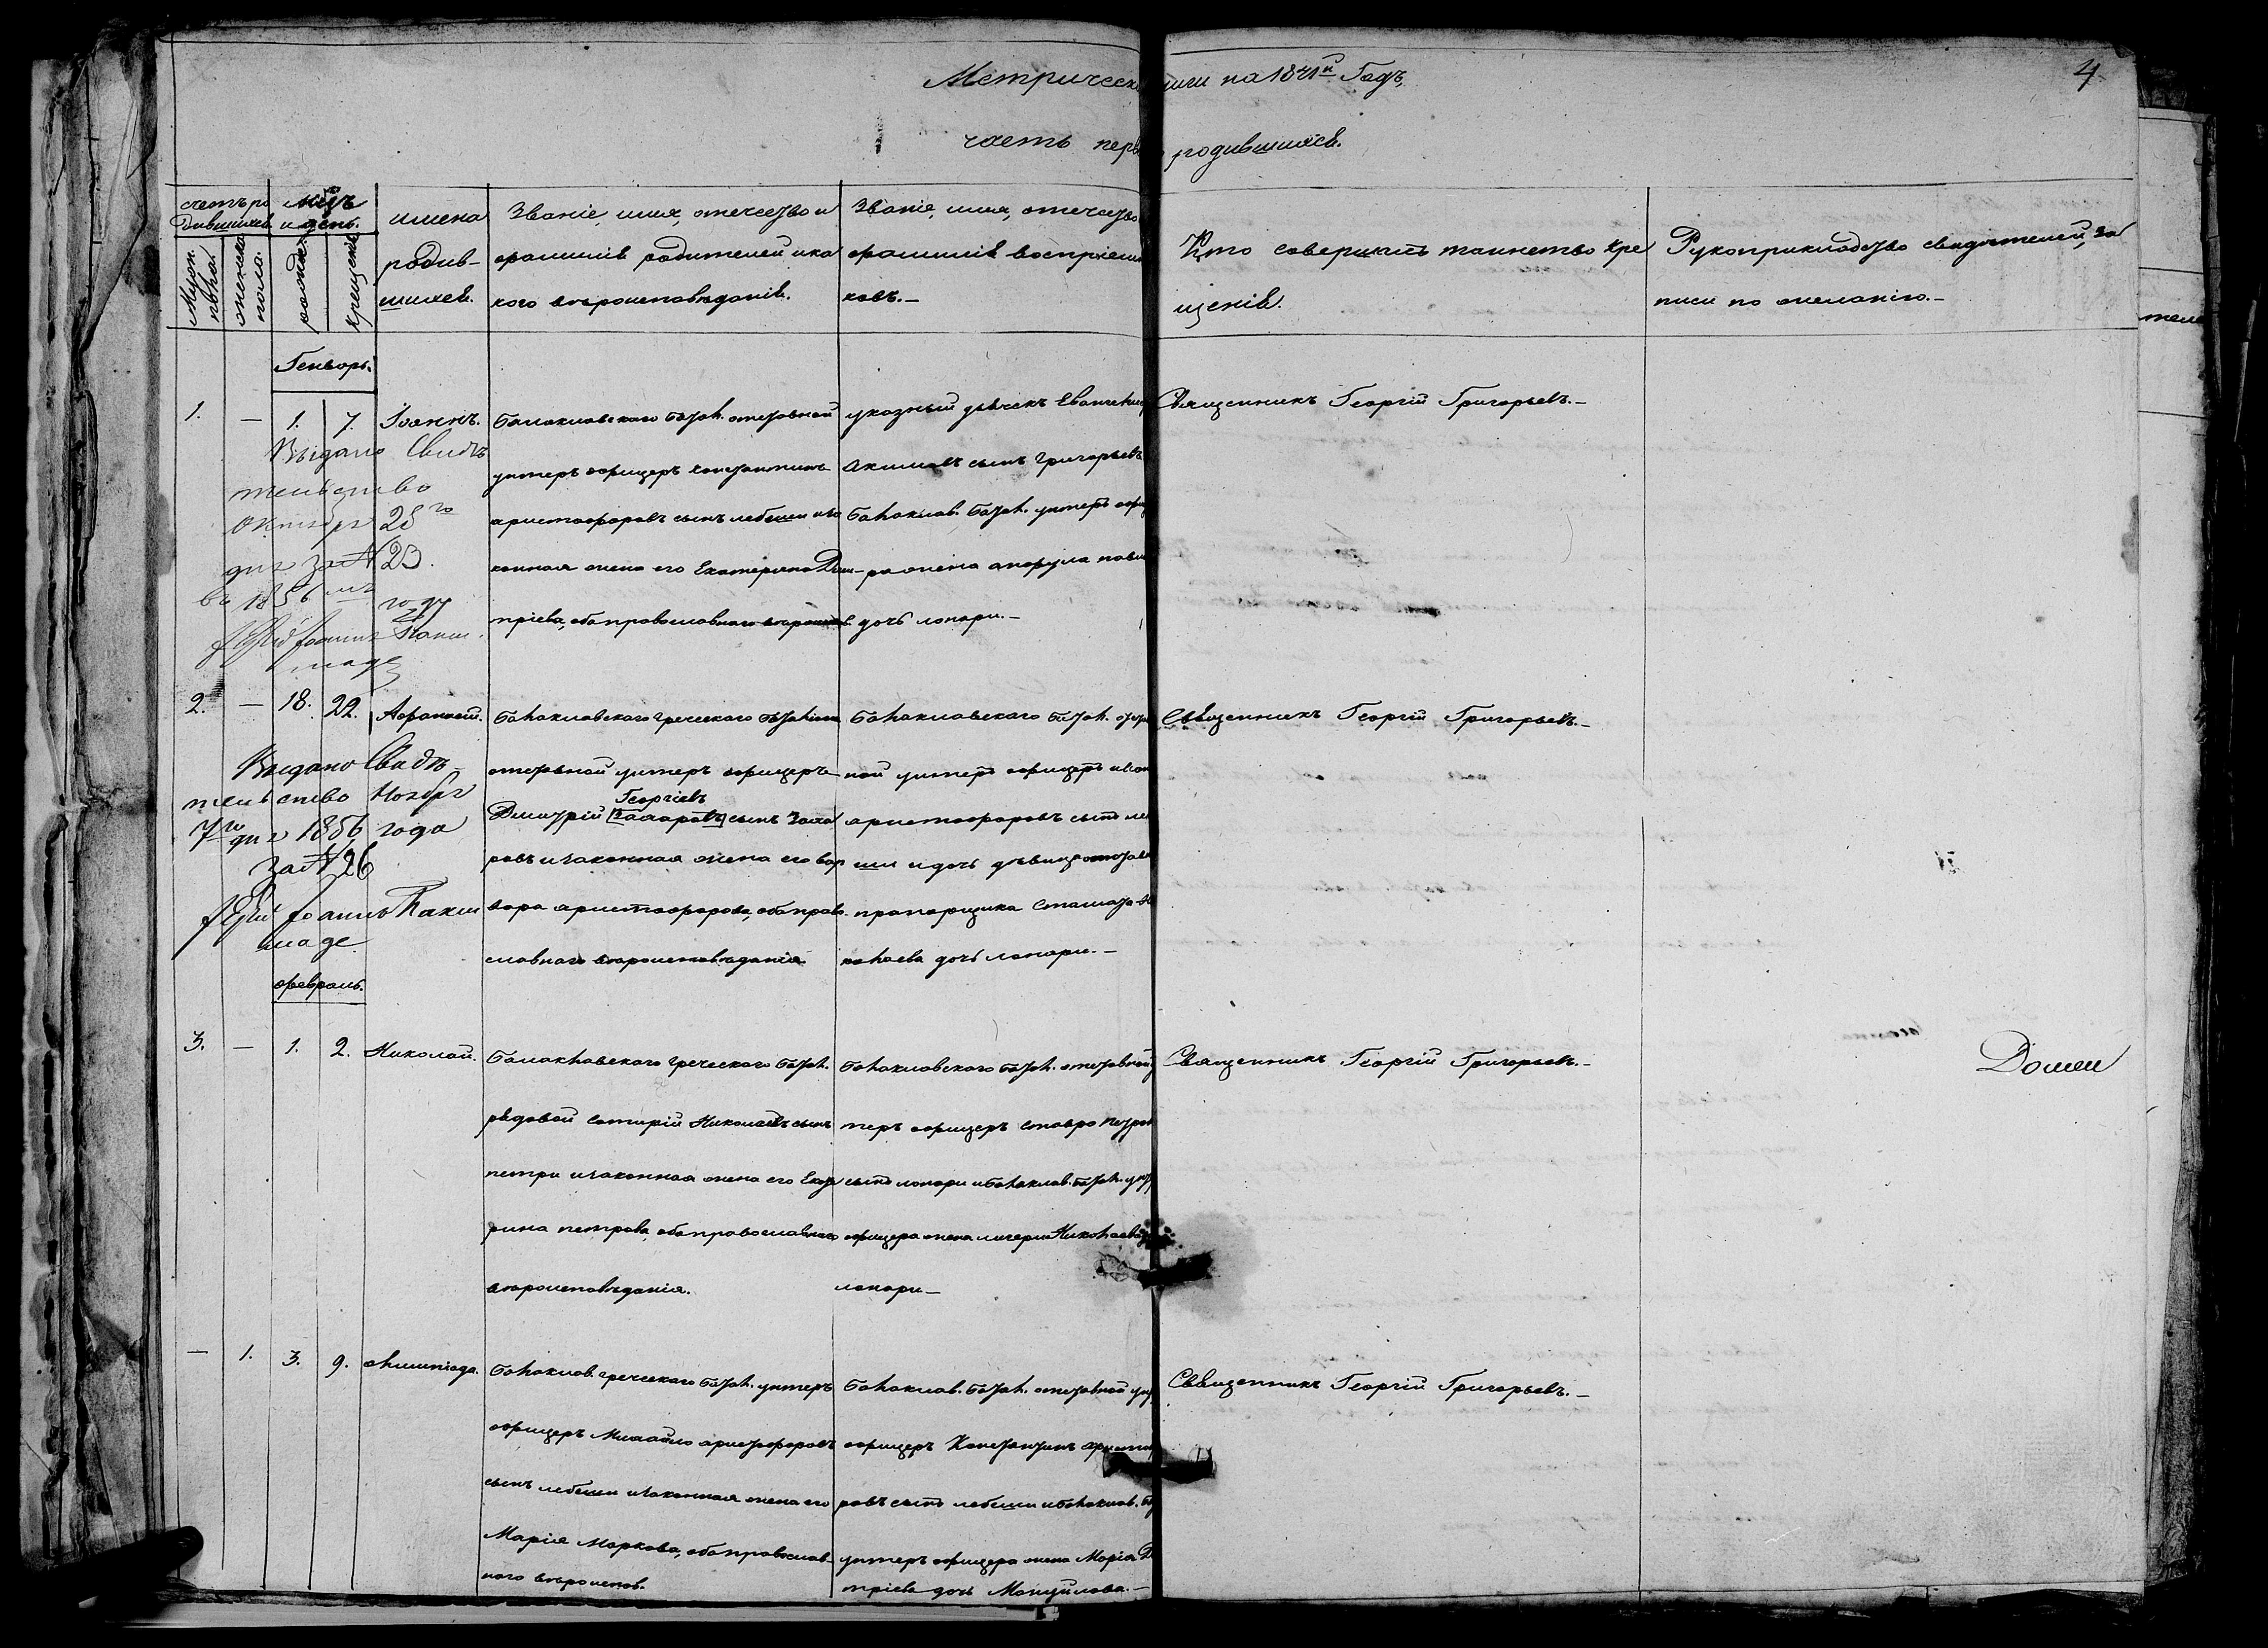 4
Метрическ ниги на 1841й Годъ,
часть пер родившихся.
счетъ ро
дившихся
мсцъ
и день.
Муж.
пола
женска
пола.
рожде
крещенія
имена
родив-
шихся.
Званіе, имя, отечество и
фамилія родителей и ка
кого вѣроисповѣданія.
Званіе, имя, отечество
фамилія воспріем
ковъ.-
Кто совершилъ таинство кре
щенія.
Рукоприкладство свидѣтелей, за
писи по желанію.-
теле
Генворь.
1. - 1. 7. Іоаннъ.
Балаклавского батал. отставной
унтеръ офицеръ константинъ
христофоровъ сынъ лебеши и за
конная жена его Екатерина Дим-
тріева, оба православного вѣроисп
указный дьячекъ Евангели
Акимовъ сынъ григорьевъ
балаклав. батал. унтеръ офи
ра жена павл
дочь лопари.-
Священникъ Георгій Григорьевъ.-
Выдано Свидѣ
тельство
Октября 28го
дня за № 23.
въ 1856мъ
году
Іоаннъ
2. - 18. 22. Афанасій.
балаклавского греческого баталіона
отставной унтеръ офицеръ
Георгіевъ
Димитрій [захаровъ] сынъ Заха
ровъ и законная жена его вар
вара христофорова, оба право-
славного вѣроисповѣданія
балаклавского батал. отста
ной унтеръ офицеръ
христофоровъ сынъ ле
ши и дочь дѣвица отстав
прапорщика Стамата
колаева дочь лопари.-
Священникъ Георгій Григорьевъ.-
Выдано Свидѣ-
тельство Ноября
7го дня 1856 года
за № 26
Іоаннъ
февраль.
3. - 1. 2. Николай.
балаклавского греческого батал.
рядовой Сотирій Николаевъ сынъ
петри и законная жена его Екате
рина петрова, оба православного
вѣроисповѣданія.
балаклавского батал. отставной у
теръ офицеръ ставро петров
сынъ лопари и балаклав. батал. унт
офицера жена Николаева
лопари-
Священникъ Георгій Григорьевъ.-
Доми
- 1. 3. 9. олимпіада.
балаклав. греческого батал. унтеръ
офицеръ Михайло христофоровъ
сынъ лебеши и законная жена его
Марія Маркова, оба православ-
ного вѣроиспов.
балаклав. батал. отставной унт
офицеръ Константинъ христоф
ровъ сынъ лебеши и балаклав. ба
унтеръ офицера жена Марія Д
тріева дочь Мануйлова.-
Священникъ Георгій Григорьевъ.-